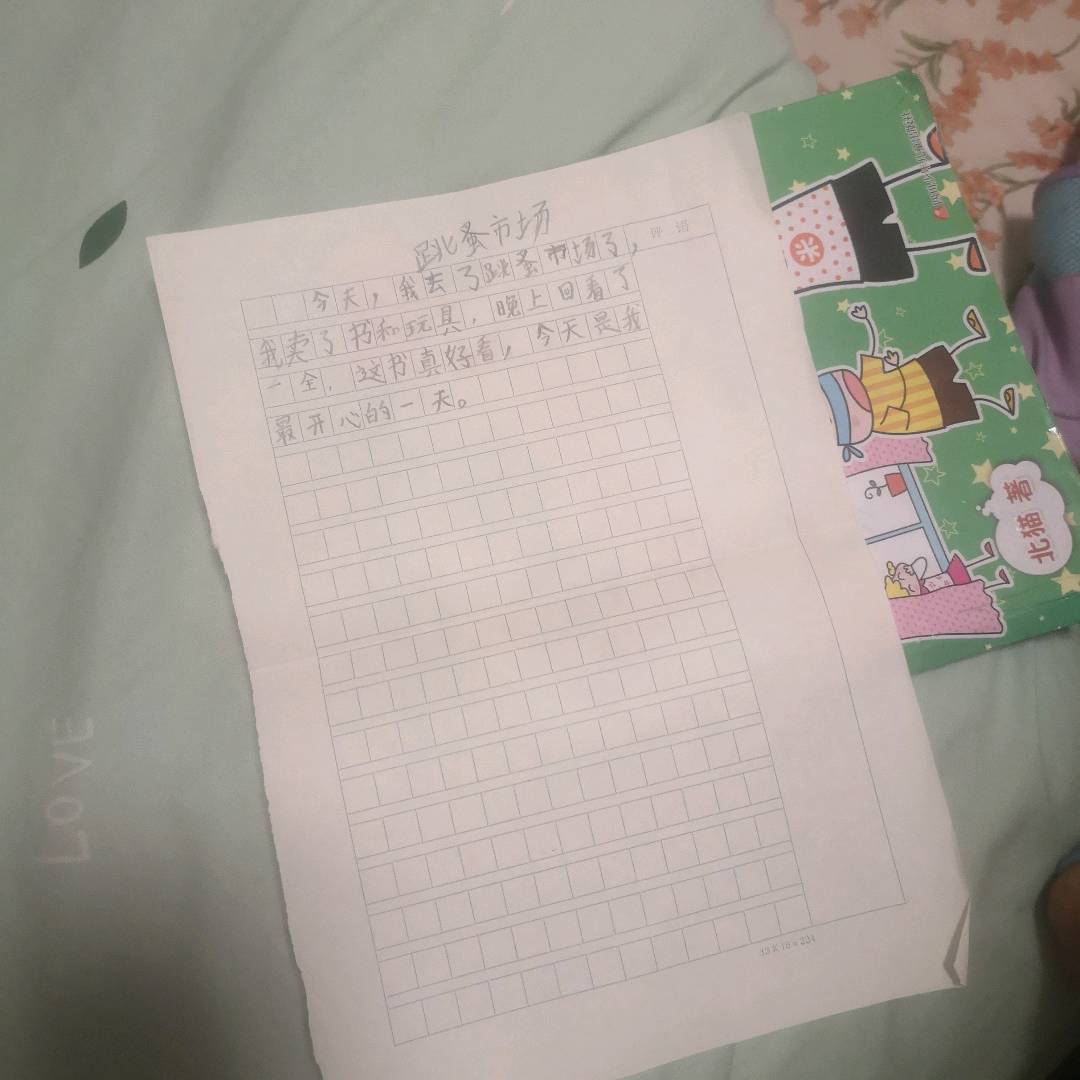 跳蚤市场
评语
今天，我去了跳蚤市场了，
我卖了书和玩具，晚上回看了
一全，这书真好看，今天是我
最开心的一天。
北猫 著
LOVE